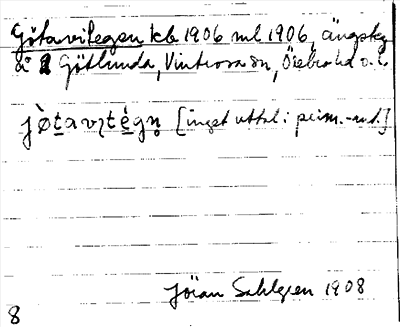 Götavitegen kb 1906 ml 1906, ängsskg
å Götlunda, Vintrosa sn, Örebro hd o. l.
jòtavıtègn̥ [inget uttal i prim.-mt.]
Jöran Sahlgren 1908
8